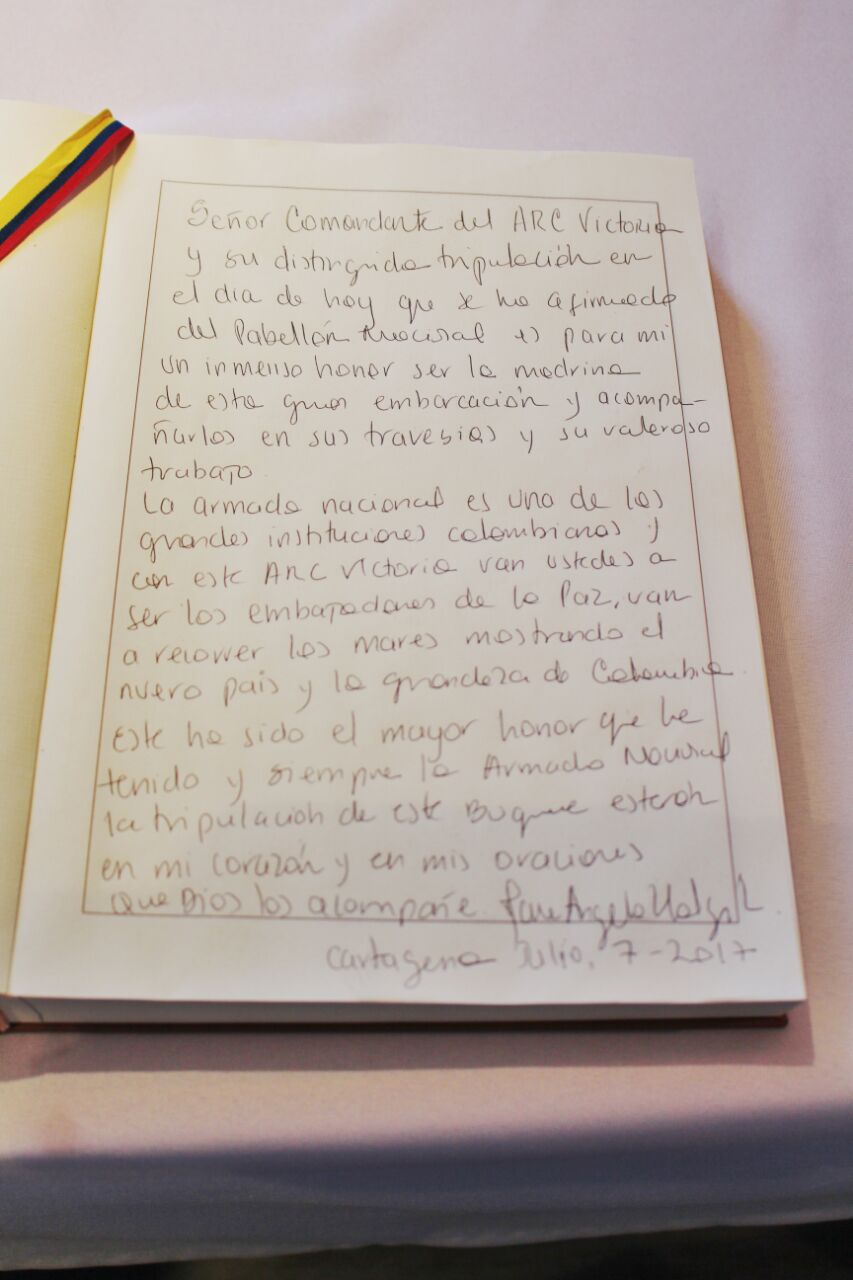 Señor Comandante del ARC Victoria
y su distinguida tripulación en
el día de hoy que se ha afirmado
del Pabellón Nacional es para mi
un inmenso honor ser la madrina
de esta gran embarcación y acompa-
ñarlos en sus travesias y su valeroso
trabajo
La armada nacional es una de las
grandes instituciones colombianas y
con este ARC Victoria van ustedes a
ser los embajadores de la Paz, van
a recorrer los mares mostrando el
nuevo país y la grandeza de Colombia
Este ha sido el mayor honor que he
tenido y siempre la Armada Nacional
la tripulación de este Buque estarán
en mi corazón y en mis oraciones
Que Dios los acompañe
Cartagena Julio, 7-2017